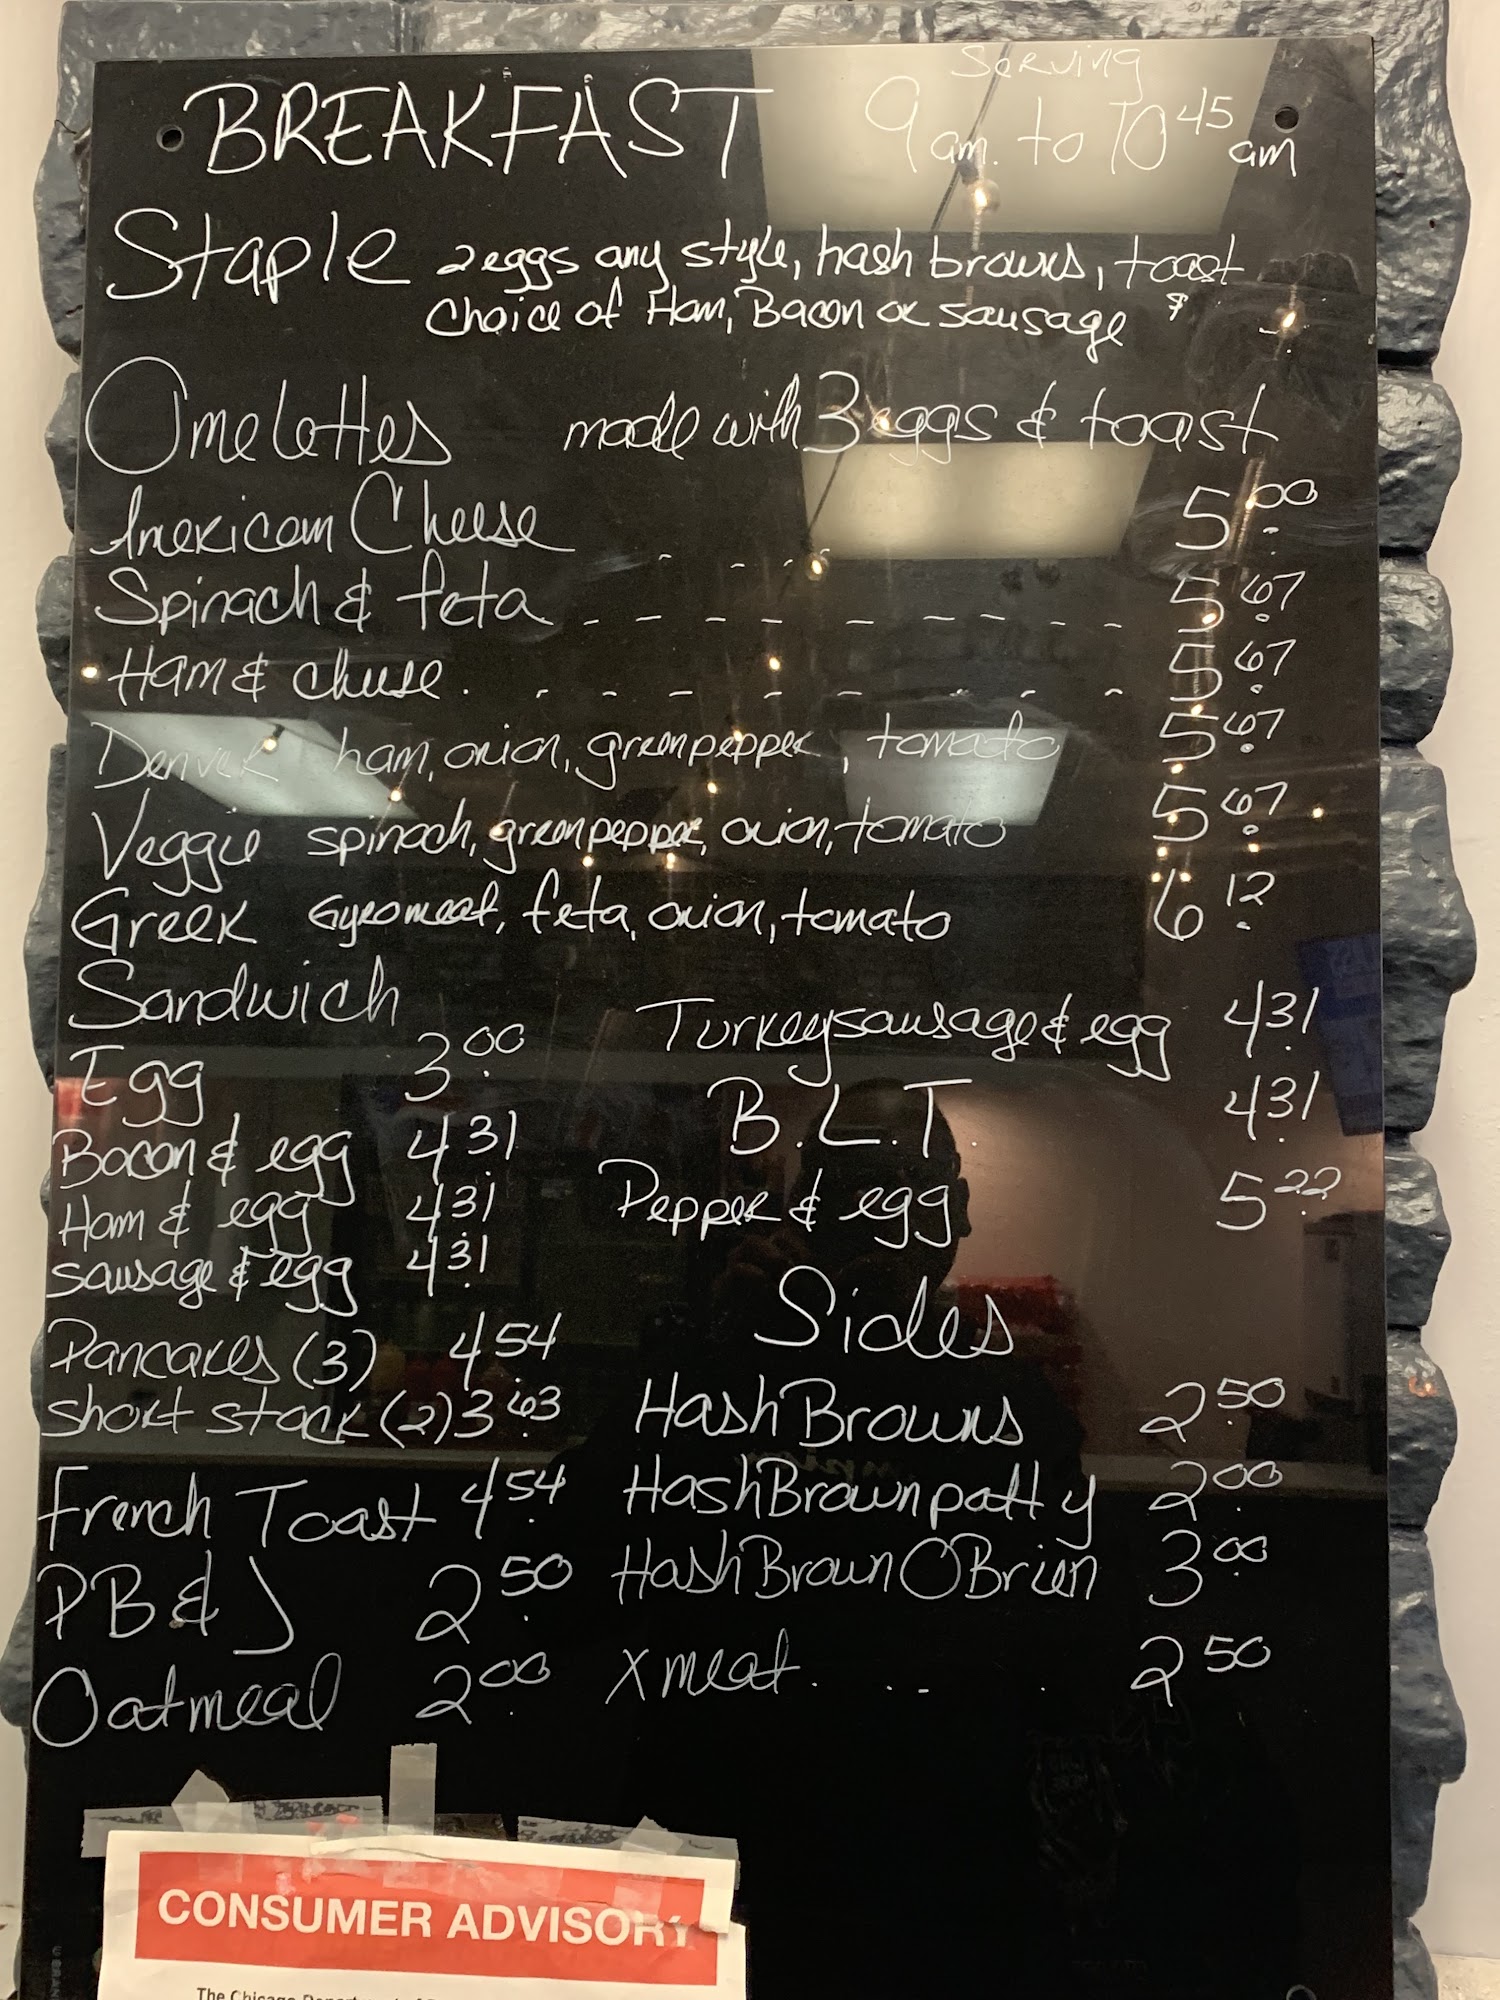 Serving
BREAKFAST 9 am. to 10 45 am
Staple 2 eggs any style, hash browns, toast
choice of Ham, Bacon or sausage $
Omelettes made with 3 eggs & toast
American Cheese 5.00
Spinach & feta 5.67
Ham & cheese 5.67
Denver ham, onion, green pepper, tomato 5.67
Veggie spinach, green pepper, onion, tomato 5.67
Greek Gyro meat, feta, onion, tomato 6.12
Sandwich
Egg 3.00
Bacon & egg 4.31
Ham & egg 4.31
sausage & egg 4.31
Pancakes (3) 4.54
short stack (2) 3.63
French Toast 4.54
PB & J 2.50
Oatmeal 2.00
Turkey sausage & egg 4.31
B.L.T. 4.31
Pepper & egg 5.22
Sides
Hash Browns 2.50
Hash Brown patty 2.00
Hash Brown O Brien 3.00
X meat 2.50
CONSUMER ADVISORY
The Chicago Department of